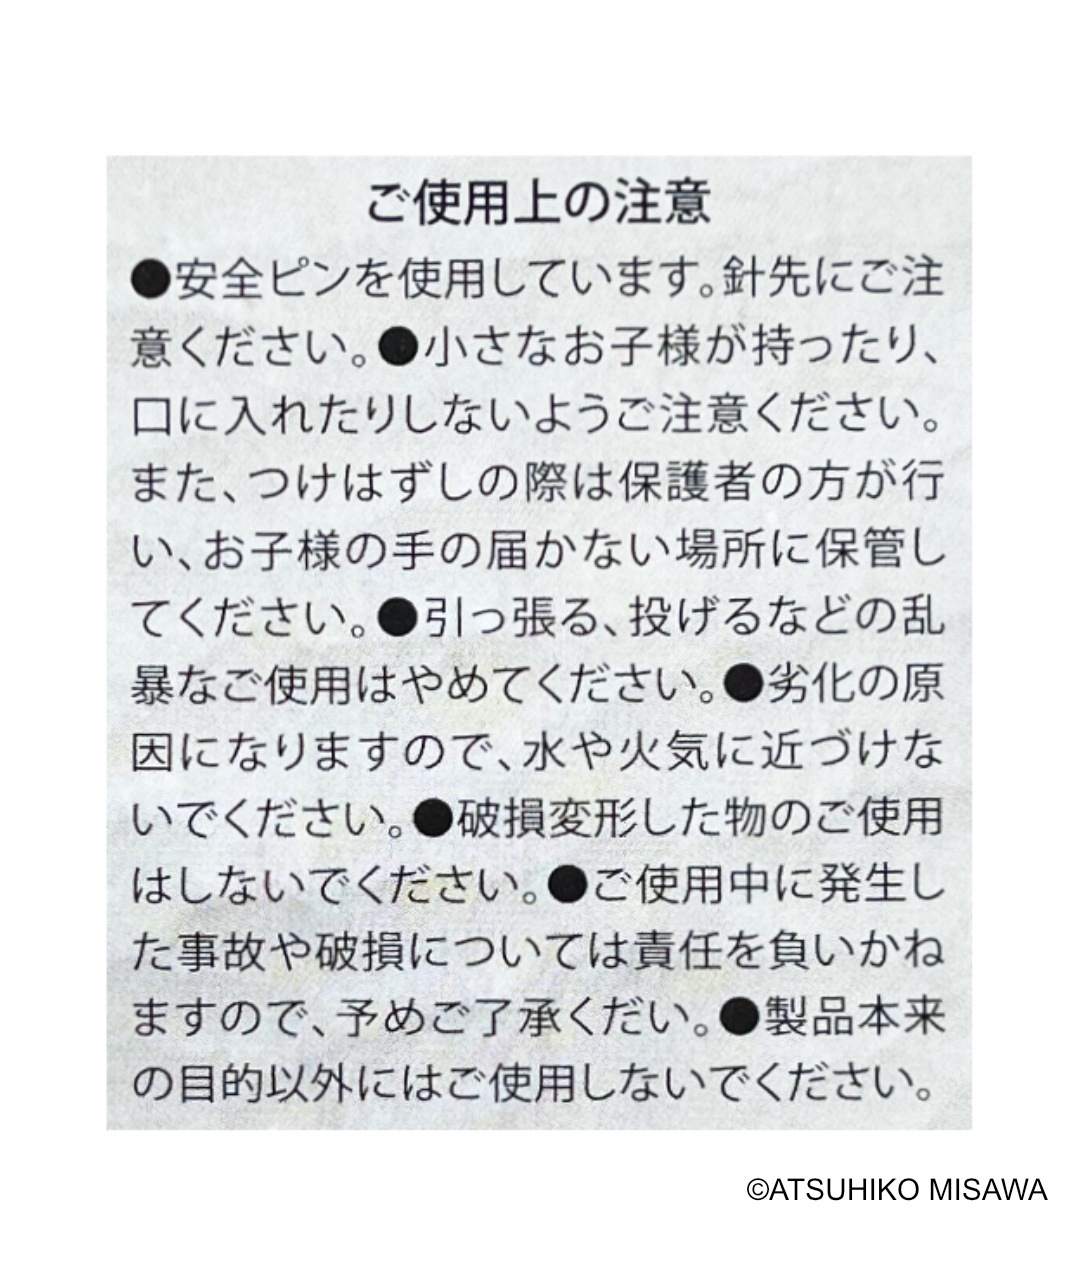 ご使用上の注意
●安全ピンを使用しています。針先にご注
意ください。●小さなお子様が持ったり、
口に入れたりしないようご注意ください。
また、つけはずしの際は保護者の方が行
い、お子様の手の届かない場所に保管し
てください。●引っ張る、投げるなどの乱
暴なご使用はやめてください。●劣化の原
因になりますので、水や火気に近づけな
いでください。●破損変形した物のご使用
はしないでください。●ご使用中に発生し
た事故や破損については責任を負いかね
ますので、予めご了承くだい。●製品本来
の目的以外にはご使用しないでください。
©ATSUHIKO MISAWA